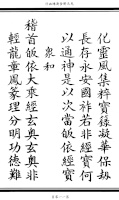 化靈風集粹寶籙凝華保劫
長存永安國祚若非經寶何
以通神是以次當皈依經寶
衆和
稽首皈依大乘經玄奧玄奧非
輕龍章鳳篆理分明功德難